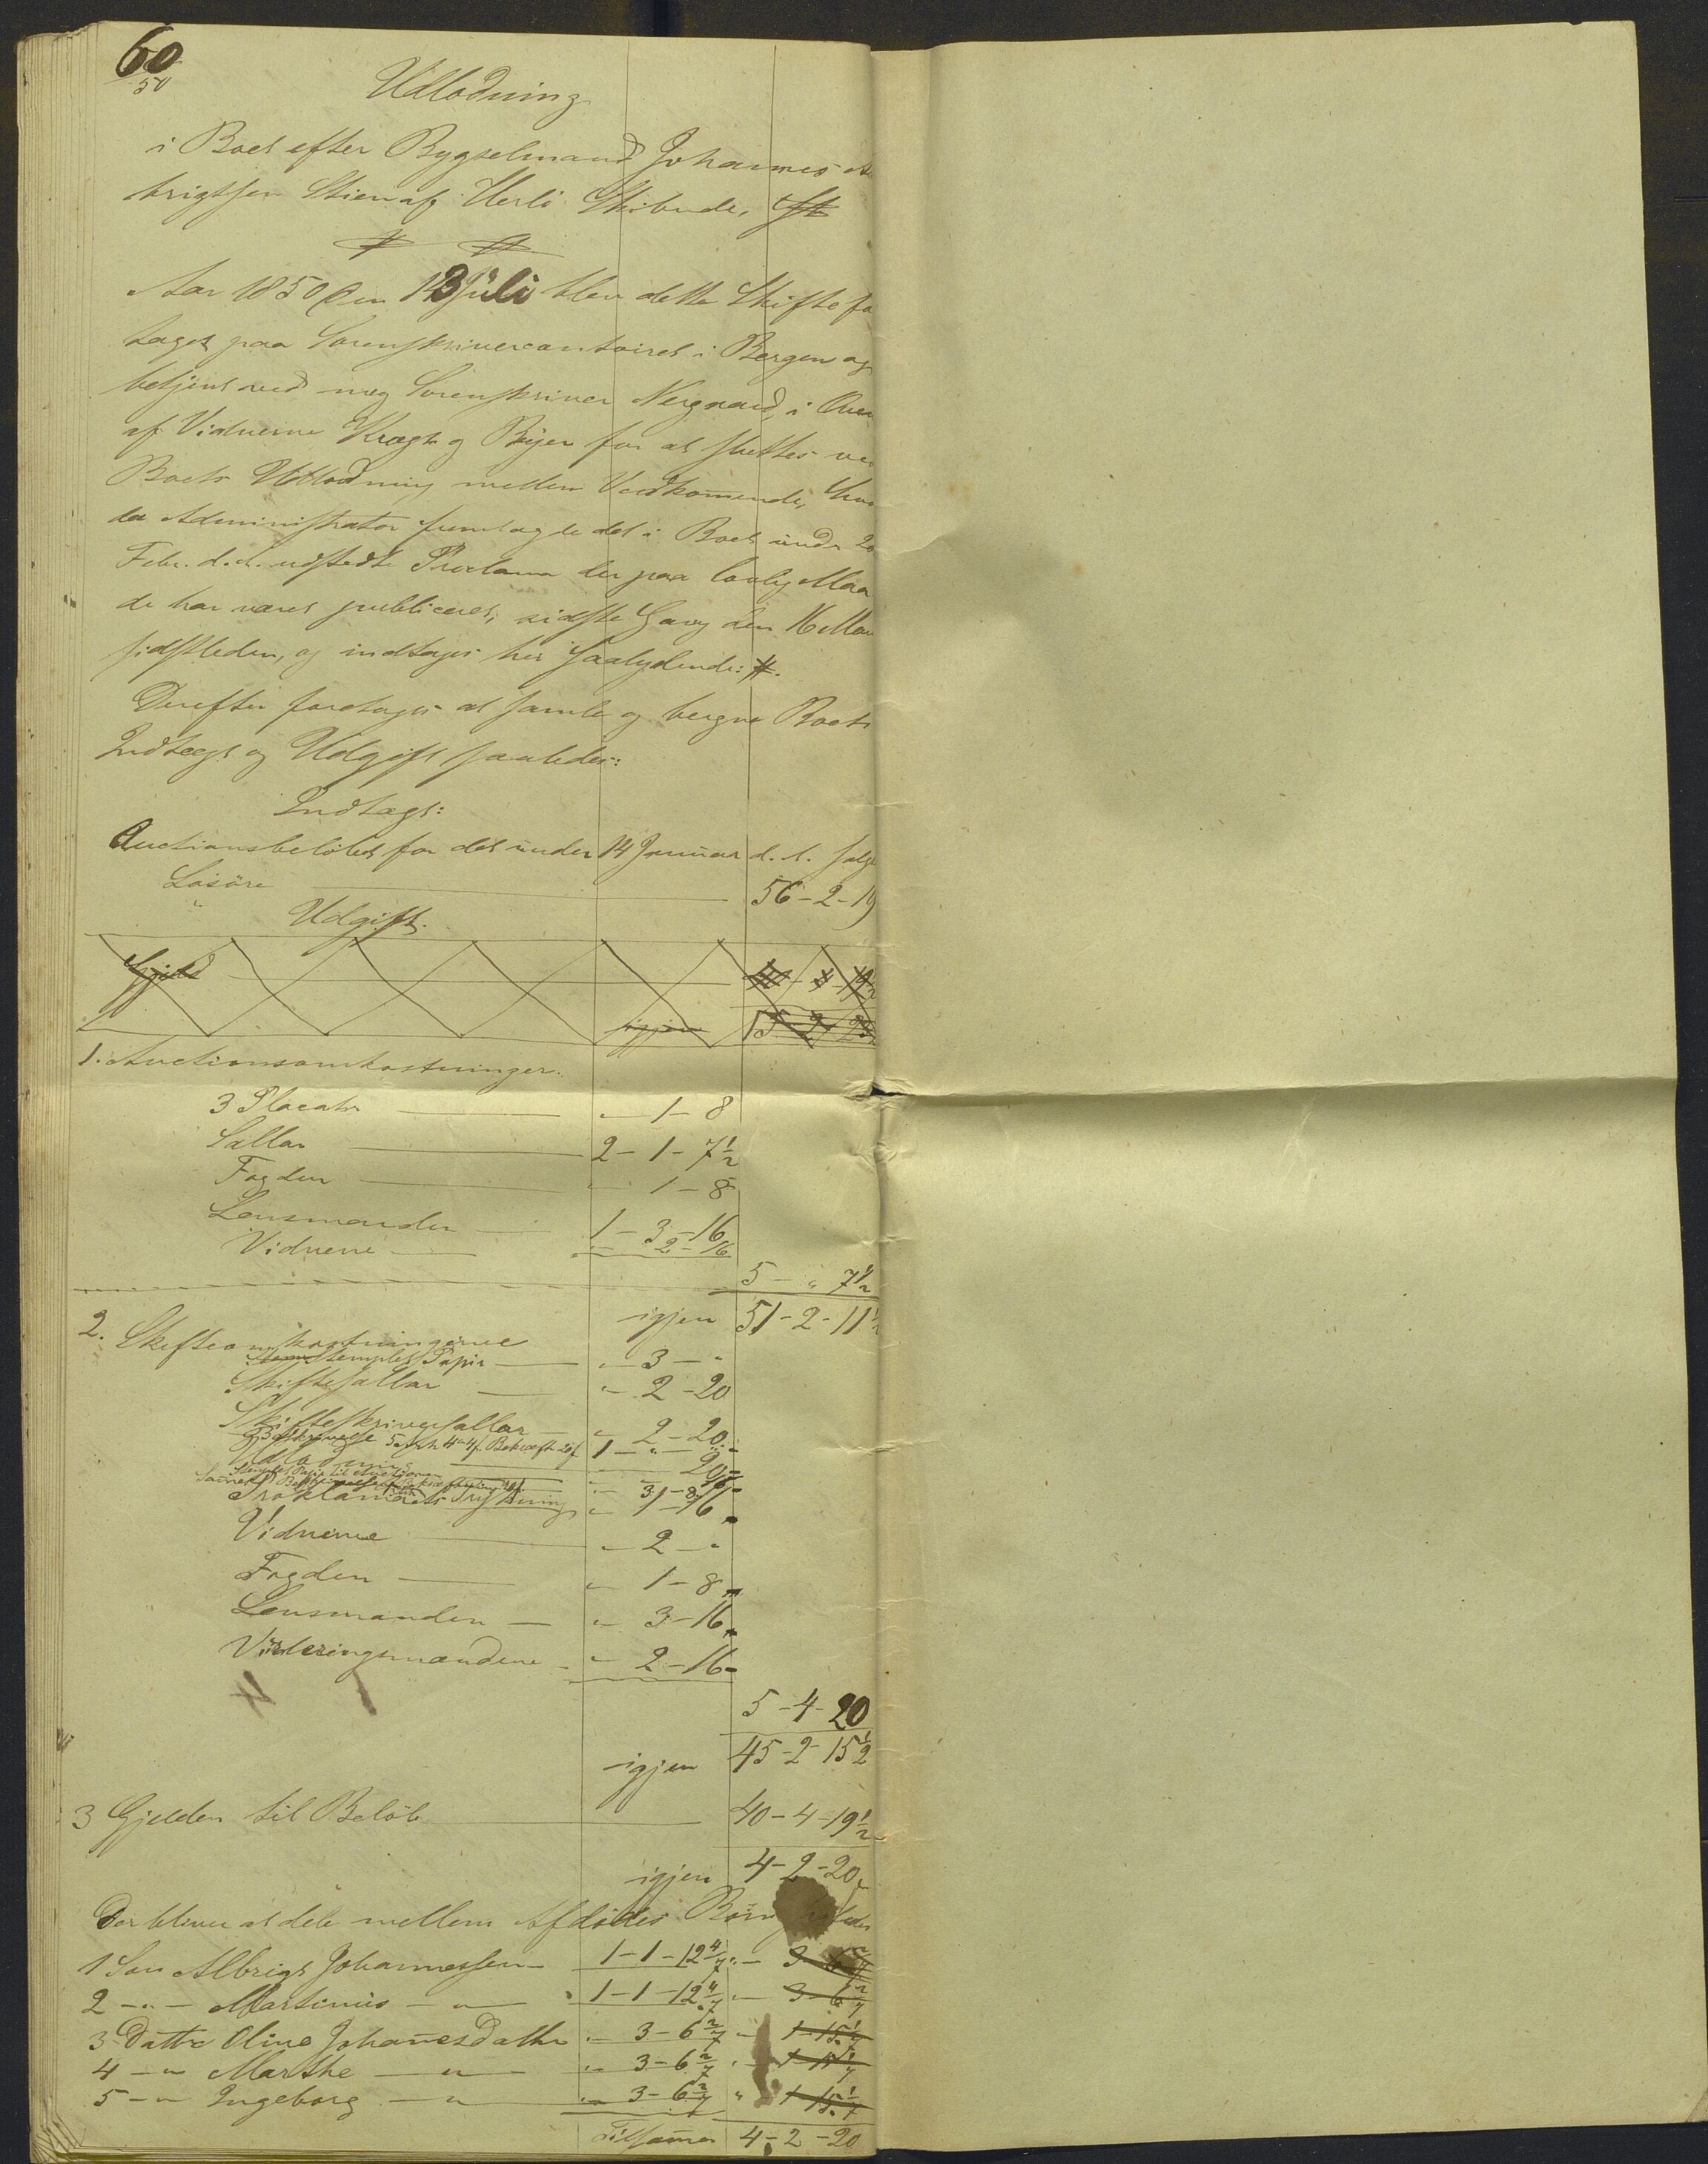 60
50
Udlodning
i Boet efter Bygselmand Johannes Al
brigtsen Stien af Herlö Skibrede,
Aar 1850 den 13 Juli blev dette Skifte fo
taget paa Sorenskrivercontoiret i Bergen og
betjent ved mig Sorenskriver Nergaard, i Over
af Vidnerne Kragh og Beyer for at sluttes ved
Boets Udlodning mellem Vedkommende, hvor
da Administrator fremlagde det i Boet under 20
Febr. d. A. udstedte Proclama der paa lovlig Maa
de har været publiceret, sidste Gang den 16 Mar
sidstleden, og indtages her saalydende: #.
Derefter foretoges at samle og beregne Boets
Indtægt og Udgift saaledes:
Indtægt:
Auctionsbeløbet for det under 14 Januar d. A. solgte
Løsöre 56 - 2 - 19
Udgift.
Gjeld
igjen 15 - 2 -
1. Auctionsomkostninger.
3 Placater " - 1 - 8
Sallar 2 - 1 - 7 1/2
Fogden " - 1 - 8
Lensmanden 1 - 3 - 16
Vidnerne " - 2 - 16
5 - " 7 1/2
igjen 51 - 2 - 11 1/2
2. Skifteomkostningerne
Stemplet Papir " - 3 - "
Skiftesallar " - 2 - 20
Skifteskriversallar " - 2 - 20
Beskrivelse 5 Ark 4 Bekræft. 20 1 - " -
Udlodning 20
Stemplet Papir til Auctionen
Proklamaets Trykning " - 1 - 16
Vidnerne " - 2 - "
Fogden " - 1 - 8
Lensmanden " - 3 - 16
Vurderingsmændene " - 2 - 16
5 - 4 - 20
igjen 45 - 2 - 15 1/2
3 Gjelden til Beløb 40 - 4 - 19 1/2
igjen 4 - 2 - 20
Der bliver at dele mellem Afdödes Börn
1 Søn Albrigt Johannessen 1 - 1 - 12 4/7 " - 3 - 6 2/7
2 - " - Martinus - " 1 - 1 - 12 4/7 " - 3 - 6 2/7
3 Datter Oline Johannesdatter " - 3 - 6 2/7 " - 1 - 15 1/7
4 - " Marthe - " - " - 3 - 6 2/7 " - 1 - 15 1/7
5 - " Ingeborg - " " - 3 - 6 2/7 " - 1 - 15 1/7
Tilsamen 4 - 2 - 20